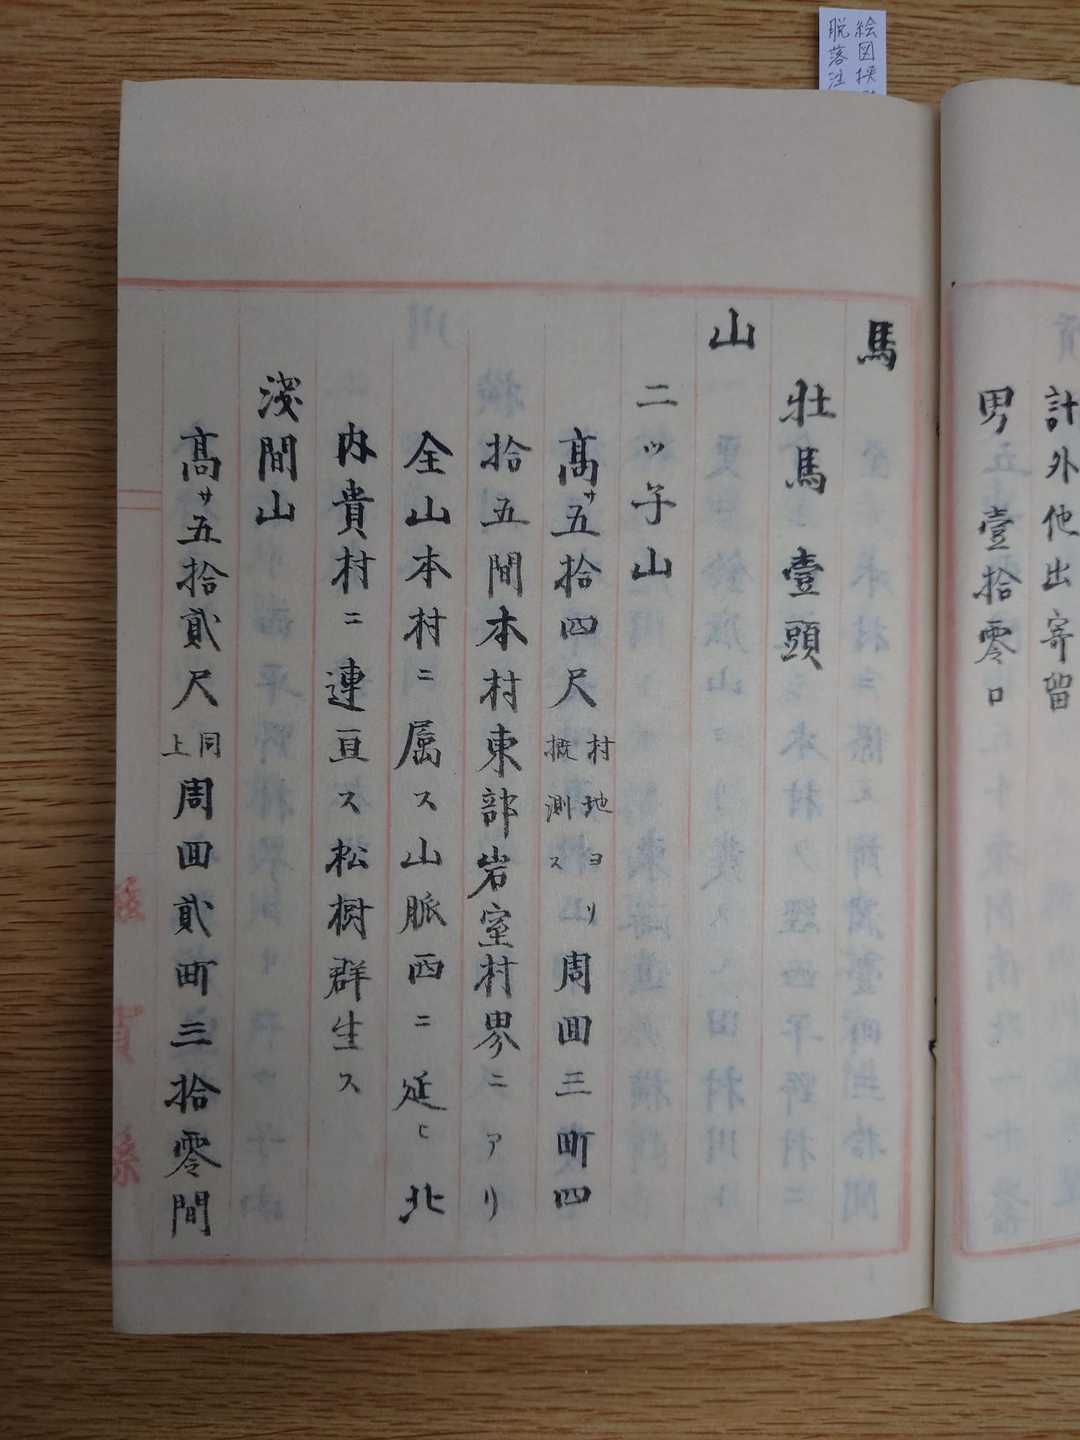 絵図挟
脱落注
計外他出寄留
男壹拾零口
馬
壮馬壹頭
山
二ッ子山
高サ五拾四尺村地ヨリ概測ス周囬三町四
拾五間本村東部岩室村界ニアリ
全山本村ニ属ス山脈西ニ延ヒ北
内貴村ニ連亘ス松樹群生ス
浅間山
高サ五拾貳尺同上周囬貳町三拾零間
賀縣